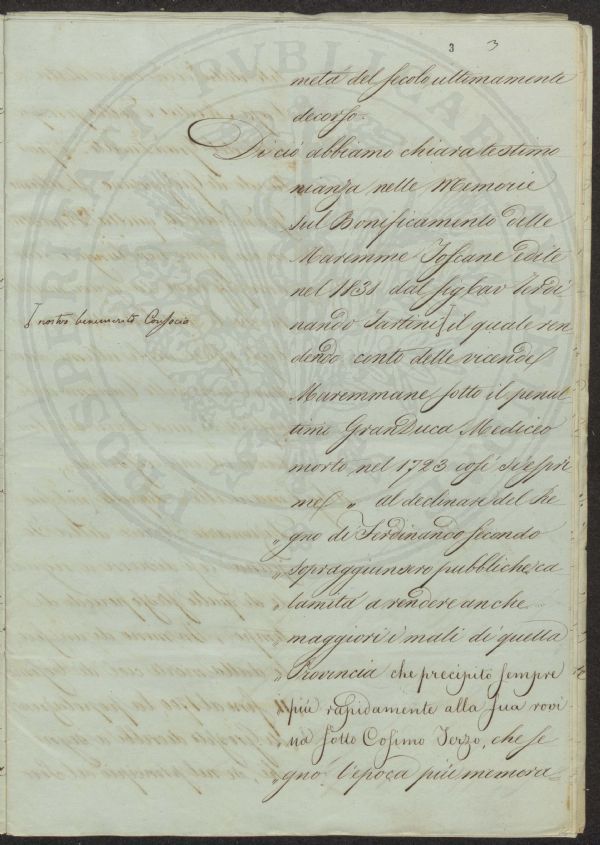 3 3
metà del secolo ultimamente
decorso.
Di ciò abbiamo chiara testimo
nianza nelle Memorie
sul Bonificamento delle
Maremme Toscane edite
nel 1838 dal Sig Cav Ferdi
nando Tartini [ il quale ren
[ nostro benemerito Consocio
dendo conto delle vicende
Maremmane sotto il penul
timo GranDuca Mediceo
morto nel 1723 così si espri
me „ al declinare del Re
„ gno di Ferdinando secondo
„ sopraggiunsero pubbliche ca
„ lamità a rendere anche
„ maggiori i mali di quella
„ Provincia che precipitò sempre
„ più rapidamente alla sua rovi
„ na sotto Cosimo Terzo, che se
„ gnò l'epoca più memora
PROSPERITATI PVBLICAE